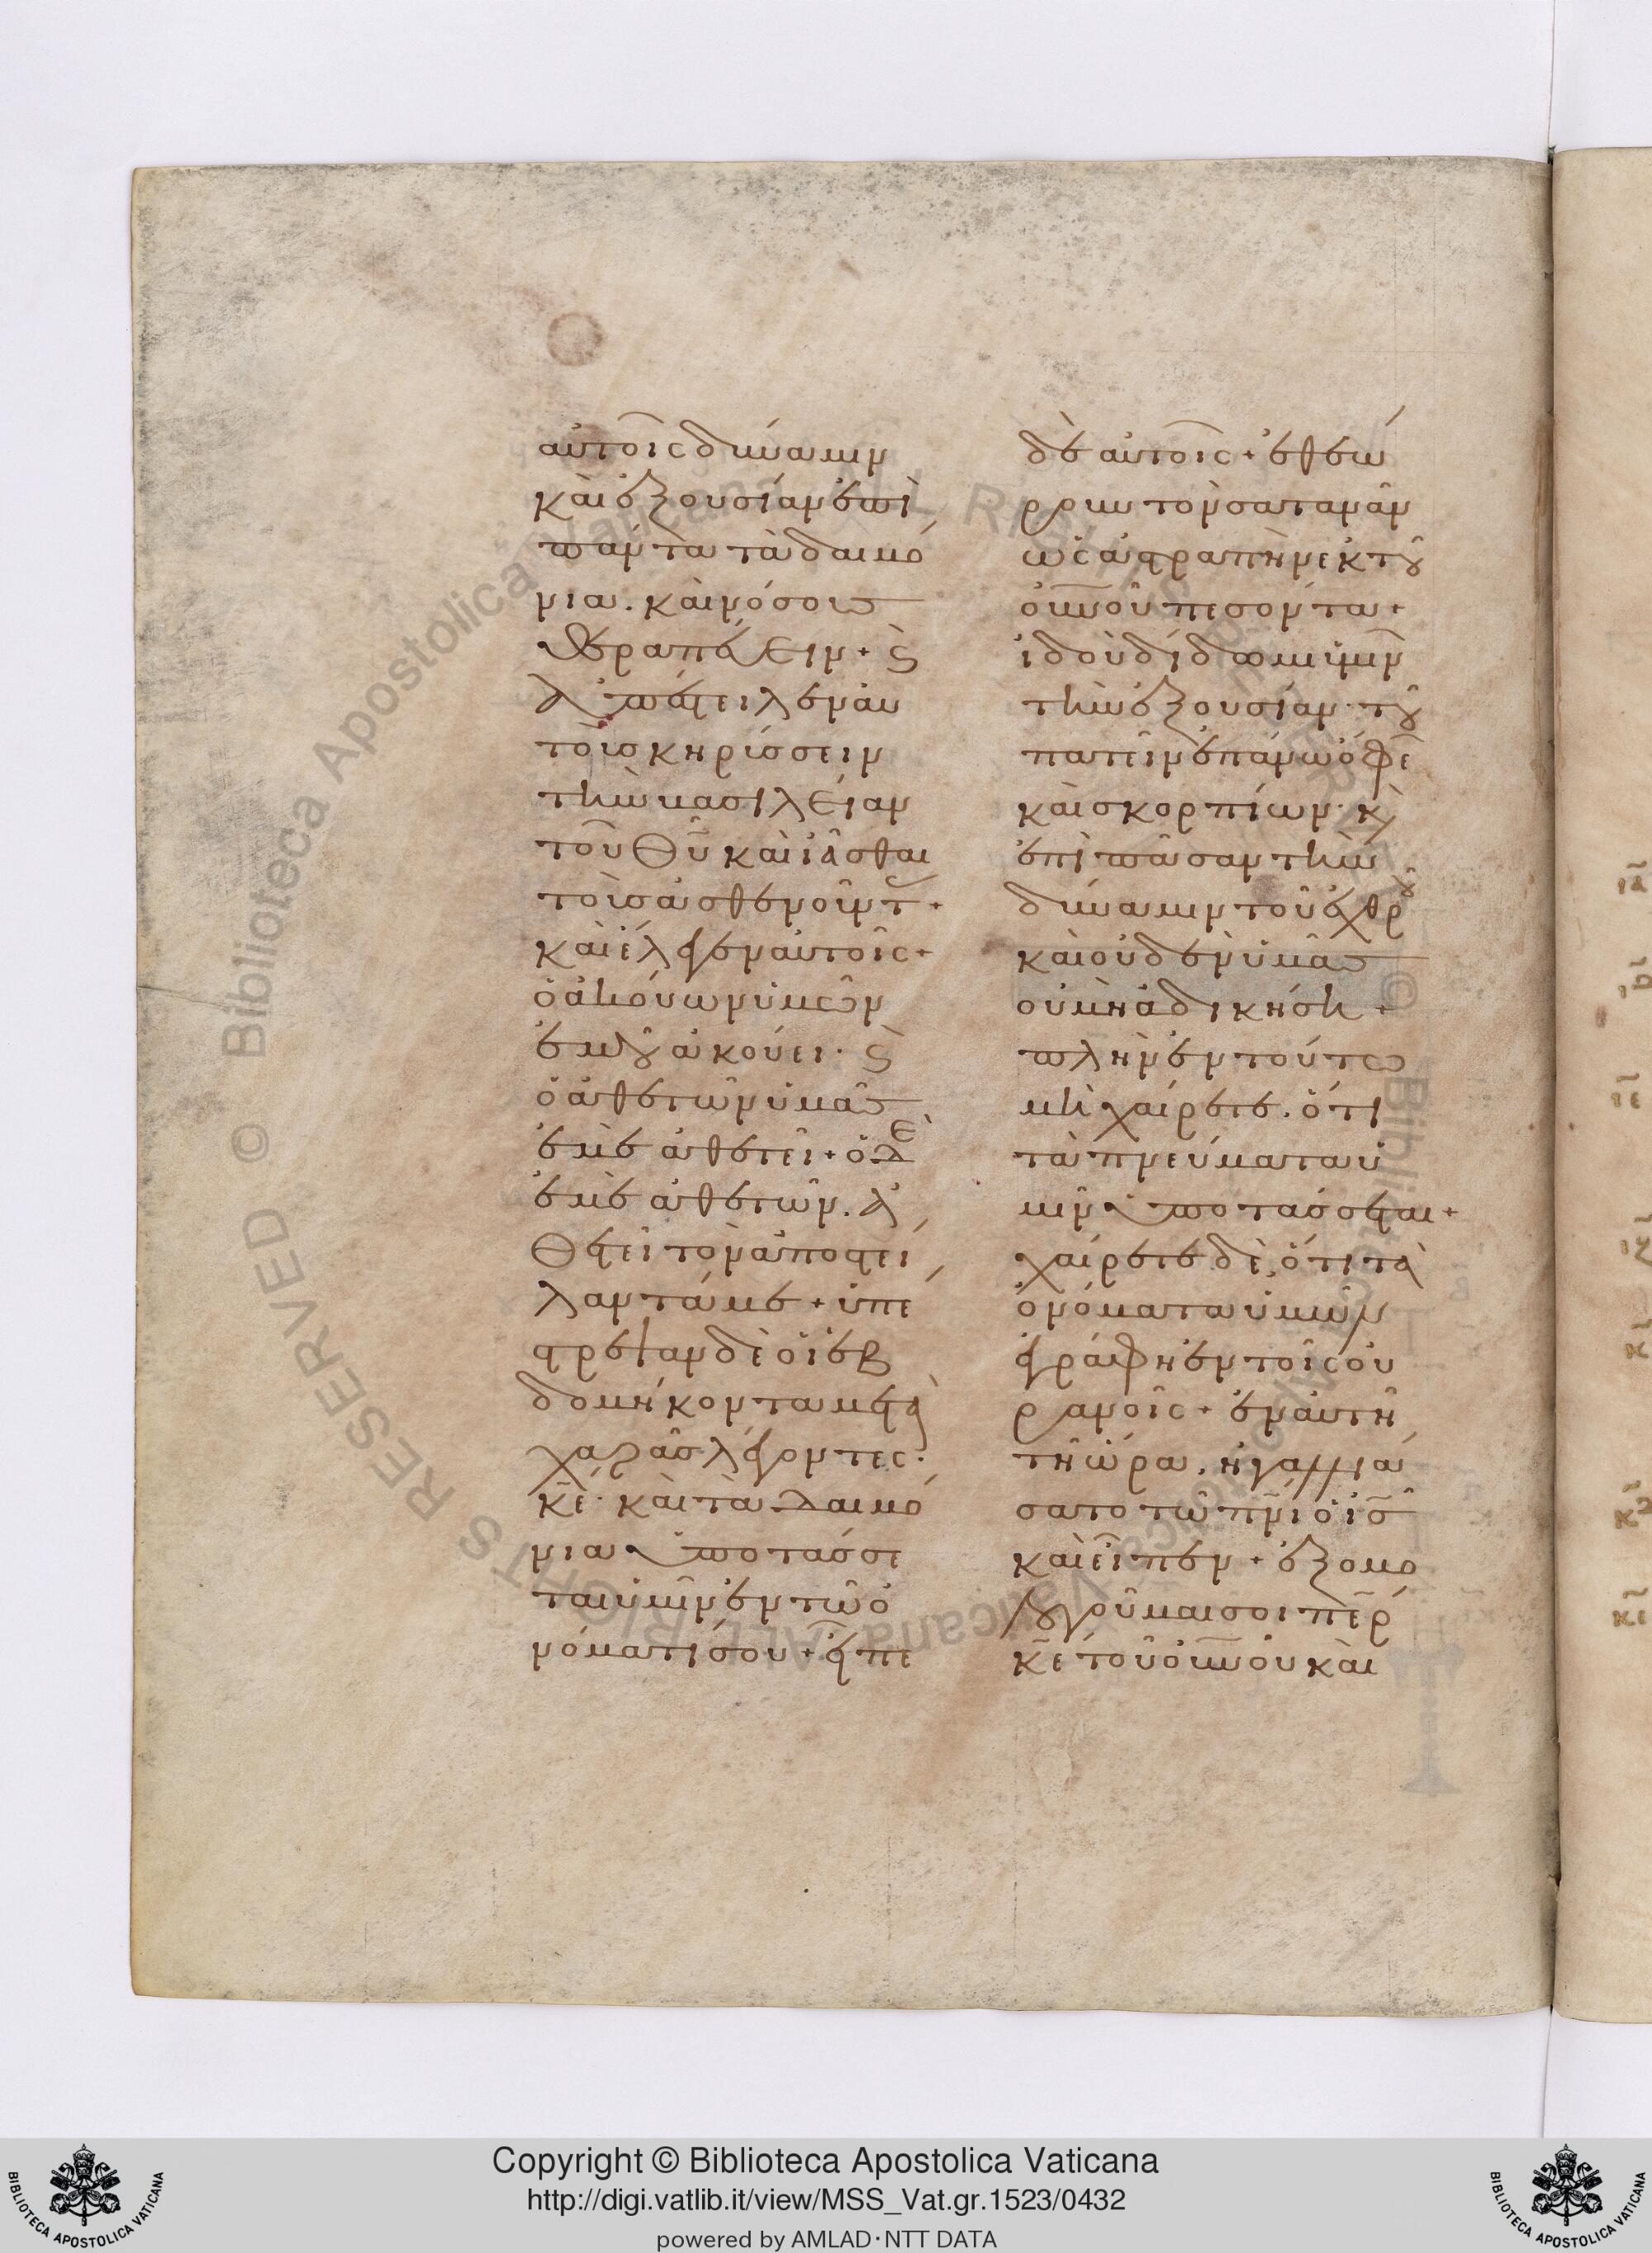 αὐτοῖς δύναμιν
καὶ ἐξουσίαν ἐπὶ
πάντα τὰ δαιμό
νια. καὶ νόσους
θεραπεύειν + ϛ̀
ἀπέστειλεν αὐ
τοὺς κηρύσσειν
τὴν βασιλείαν
τοῦ Θῦ καὶ ἰᾶσθαι
τοὺς ἀσθενοῦντ +
καὶ ἔλεγεν αὐτοῖς +
ὁ ἀκούων ὑμῶν
ἐμοῦ ἀκούει · ϛ̀
ὁ ἀθετῶν ὑμᾶς
ἐμὲ ἀθετεῖ + ὁ δὲ
ἐμὲ ἀθετῶν. ἀ
θετεῖ τὸν ἀποστεί
λαντά με + ὑπέ
στρεψαν δὲ οἱ ἑβ
δομήκοντα μετὰ
χαρᾶς λέγοντες ·
κε̄ · καὶ τὰ δαιμό
νια ὑποτάσσε
ται ὑμῖν ἐν τῶ ὀ
νόματί σου + εἶπε
δὲ αὐτοῖς + ἐθεώ
ρουν τὸν σατανᾶν
ὡς ἀστραπὴν ἐκ τοῦ
οὐνοῦ πεσόντα +
ἰδοὺ δίδωμι ὑμῖν
τὴν ἐξουσίαν · τοῦ
πατεῖν ἐπάνω ὄφε
καὶ σκορπίων · κ̀
ἐπὶ πᾶσαν τὴν
δύναμιν τοῦ ἐχθροῦ
καὶ οὐδὲν ὑμᾶς
οὐ μὴ ἀδικήση +
πλὴν ἐν τούτω
μὴ χαίρετε. ὅτι
τὰ πνεύματα ὑ
μῖν ὑποτάσσεται +
χαίρετε δὲ, ὅτι τὰ
ὀνόματα ὑμῶν
ἐγράφη ἐν τοῖς οὐ
ρανοῖς + ἐν αὐτῆ
τῆ ὥρα, ἠγαλλιά
σατο τῶ πνι ὁ ις
καὶ εἶπεν + ἐξομο
λογοῦμαι σοι περ
κε̄ τοῦ οὐνοῦ καὶ
Copyright © Biblioteca Apostolica Vaticana
http://digi.vatlib.it/view/MSS_Vat.gr.1523/0432
powered by AMLAD·NTT DATA